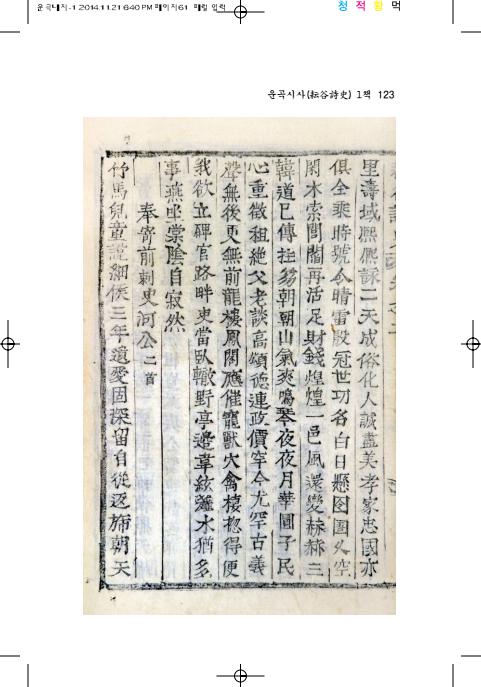 운곡내지-1 2014.11.21 6:40 PM 페이지61 매일 입력
청 적 황 먹
운곡시사(耘谷詩史) 1책 123
里壽域熙熙詠二天成俗化人誠盡美孝家忠國亦
俱全乘時號令晴雷殷冠世功名白日懸囹圄久空
閑木索閭閻再活足財錢煌煌一邑風還變赫赫三
韓道已傳拄笏朝朝山氣爽鳴琴夜夜月華圓子民
心重徵租絶父老談高頌德連政價罕今尤罕古義
聲無後更無前龍樓鳳閣應催寵獸穴禽棲摠得便
我欲立碑官路畔吏當臥轍野亭邊韋絃難水猶多
事燕坐棠陰自寂然
奉寄前刺史河公 二首
竹馬兒童說細侯三年遺愛固深留自從返旆朝天